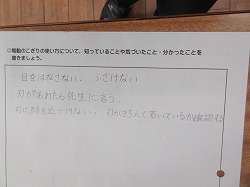 ◎電動のこぎりの使い方について、知っていることや気づいたこと・分かったことを
書きましょう。
・目をはなさない。・ふざけない
・刃がおれたら先生に言う。
・刃に顔を近づけない。・刃がきちんと着いているか確認する